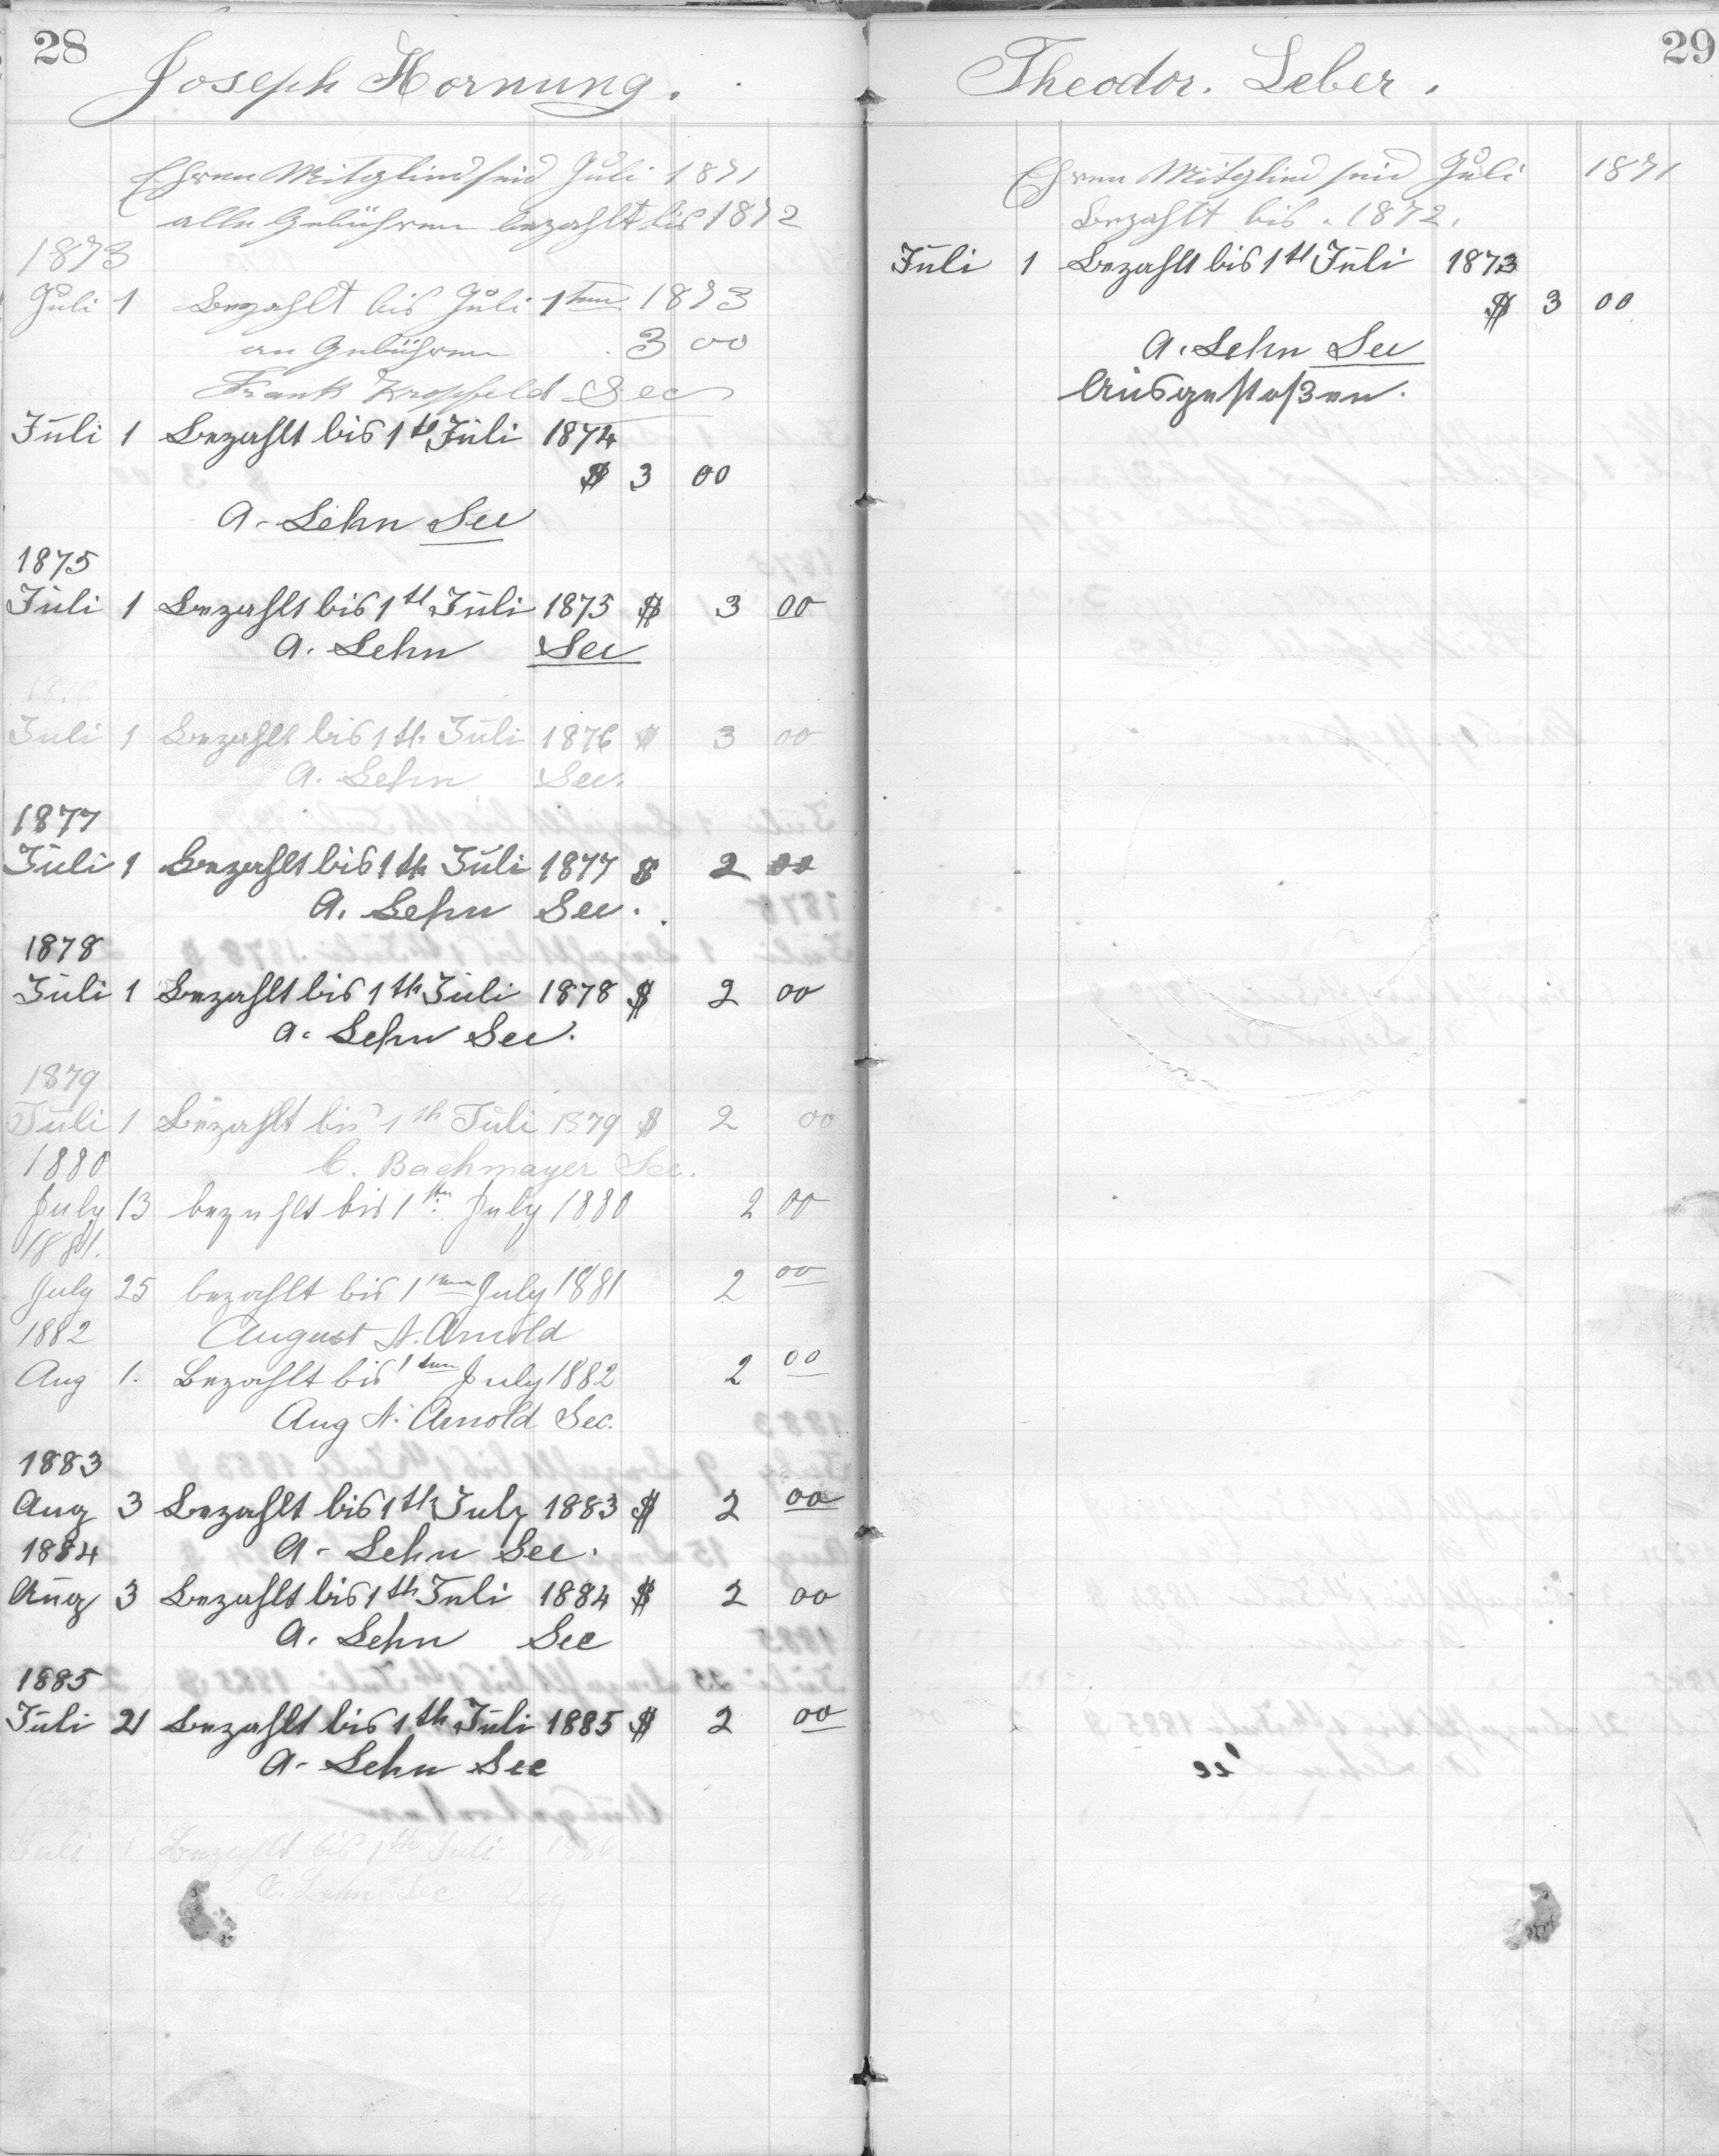 28
Joseph Hornung.
Ehren Mitglied seid Juli 1871
alle Gebühren bezahlt bis 1872
1873
Juli 1 Bezahlt bis Juli 1ten 1873
an Gebühren 3 00
Frank Sec
Juli 1 Bezahlt bis 1th Juli 1874
$ 3 00
A. Lehn Sec
1875
Juli 1 Bezahlt bis 1th Juli 1875 $ 3 00
A. Lehn Sec
1876
Juli 1 Bezahlt bis 1th Juli 1876 $ 3 00
A. Lehn Sec.
1877
Juli 1 Bezahlt bis 1th Juli 1877 $ 2 00
A. Lehn Sec.
1878
Juli 1 Bezahlt bis 1th Juli 1878 $ 2 00
A. Lehn Sec.
1879
Juli 1 Bezahlt bis 1th Juli 1879 $ 2 00
1880 C. Bachmayer Sec.
July 13 bezahlt bis 1ten July 1880 2 00
1881.
July 25 bezahlt bis 1ten July 1881 2 00
1882 August N. Arnold
Aug 1. Bezahlt bis 1ten July 1882 2 00
Aug N. Arnold Sec.
1883
Aug 3 Bezahlt bis 1th July 1883 $ 2 00
1884 A. Lehn Sec.
Aug 3 Bezahlt bis 1th Juli 1884 $ 2 00
A. Lehn Sec
1885
Juli 21 Bezahlt bis 1th Juli 1885 $ 2 00
A. Lehn Sec
Juli 1 Bezahlt bis 1th Juli 1886
A. Lehn Sec
29
Theodor. Leber.
Ehren Mitglied seid Juli 1871
Bezahlt bis. 1872.
Juli 1 Bezahlt bis 1th Juli 1873
$ 3 00
A. Lehn Sec
Ausgestoßen.